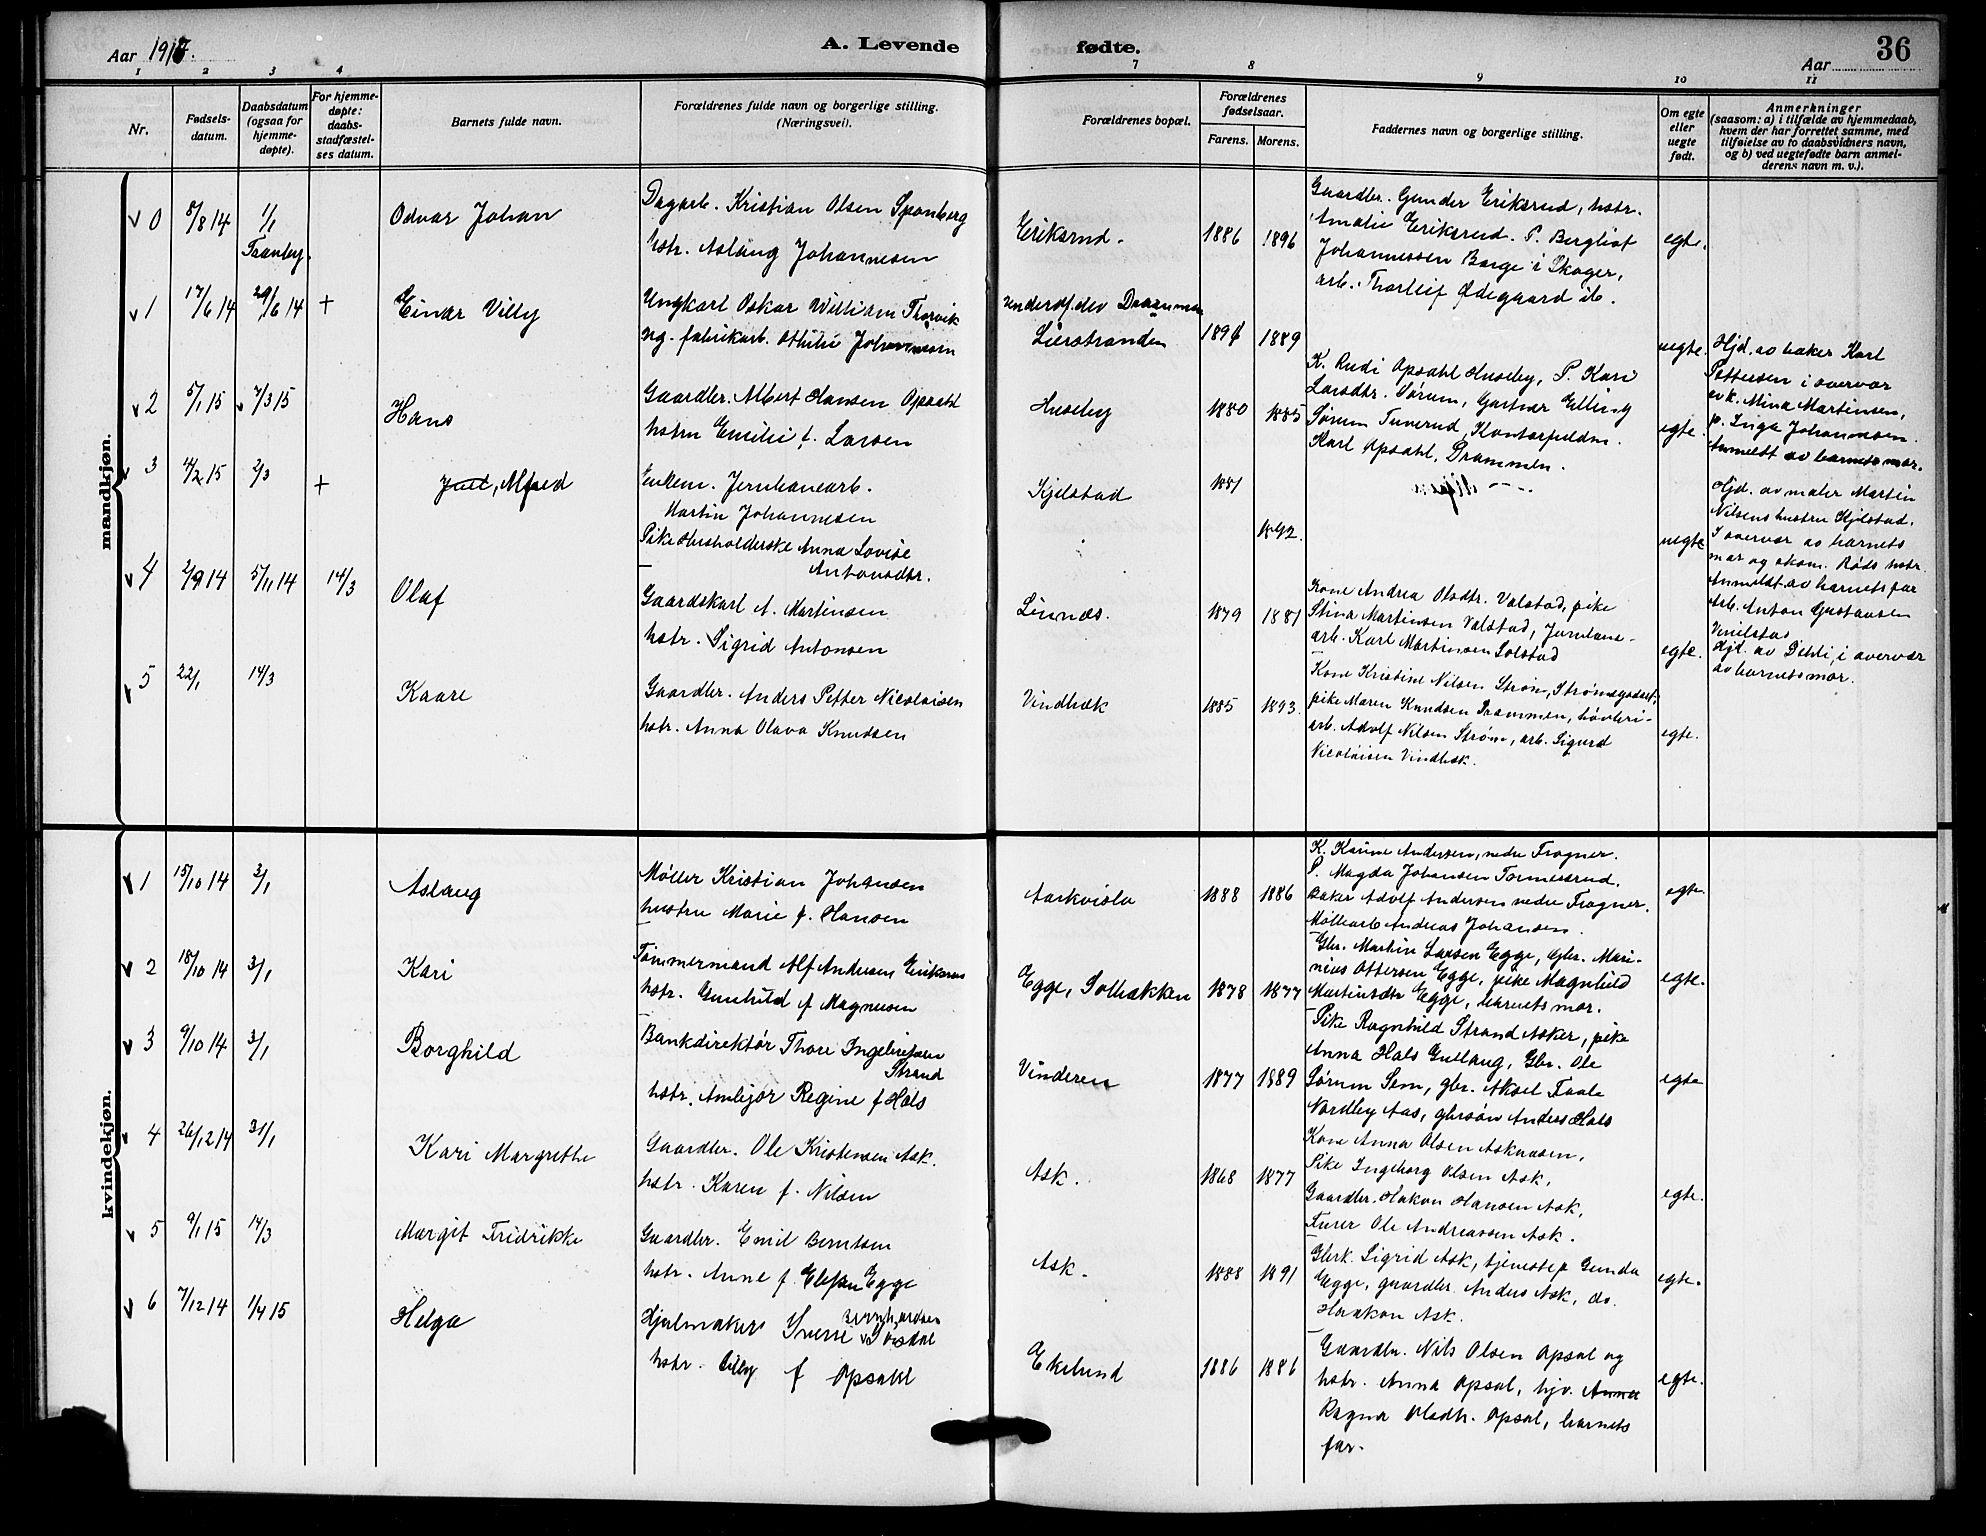 Aar 1915.
A. Levende
fødte.
Aar
36
1 2 3 4 7 8 9 10 11
Nr.
Fødsels-
datum.
Daabsdatum
(ogsaa for
hjemme-
døpte).
For hjemme-
døpte:
daabs-
stadfæstel-
ses datum.
Barnets fulde navn.
Forældrenes fulde navn og borgerlige stilling.
(Næringsvei).
Forældrenes bopæl.
Forældrenes
fødselsaar.
Farens. Morens.
Faddernes navn og borgerlige stilling.
Om egte
eller
uegte
født.
Anmerkninger
(saasom: a) i tilfælde av hjemmedaab,
hvem der har forrettet samme, med
tilføielse av to daabsvidners navn,
og b) ved uegtefødte barn anmel-
derens navn m. v.).
mandkjøn.
0 5/8 14 1/1
Tranby.
Odvar Johan
Dagarb. Kristian Olsen Sponberg
hstr. Aslaug Johannesen
Eriksrud.
1886 1896
Gaardbr. Gunder Eriksrud, hstr.
Amalie Eriksrud. P. Bergliot
Johannessen Borge i Skoger,
arb. Thorleif Ødegaard ib.
egte.
1 17/6 14 29/6 14 +
Einar Villy
Ungkarl Oskar William Thorvik
ug. fabrikarb. Othilie Johannesen
underof. dev Drammen
Lierstranden
1894 1889
uegte.
Hjd. av baker Karl
Pettersen i overvær
av k. Mina Martinsen,
p. Inga Johannesen.
Anmeldt av barnets mor.
2 5/1 15 7/3 15
Hans
Gaardbr. Albert Hansen Opsahl
hstru Emilie f. Larsen
Huseby
1880 1885
K. Rudi Opsahl Huseby, P. Kari
Larsdtr. Sørum, Gartner Elling
Sørum Tuverud, Kontorfuldm.
Karl Opsahl, Drammen.
egte.
3 4/2 15 2/3 +
Juel, Alfred
Enkem. Jernbanearb.
Martin Johannesen
Pike Husholderske Anna Lovise
Antonsdtr.
Kjelstad
1881
1892.
uegte
Hjd. av maler Martin
Nilsens hustru Kjelstad.
I overvær av barnets
mor og skom. Røds hstr.
Anmeldt av barnets far
4 2/9 14 5/11 14 14/3
Olaf
Gaardskarl A. Martinsen
hstr. Sigrid Antonsen
Linnes.
1879 1881
Kone Andrea Olsdtr. Valstad, pike
Stina Martinsen Valstad, Jernbane-
arb. Karl Martinsen Solstad
egte.
Arb. Anton Gustavsen
Hjd. av Dehli, i overvær
av barnets mor.
5 22/1 14/3
Kaare
Gaardbr. Anders Petter Nicolaisen
hstr. Anna Olava Knudsen
Vindbæk
1885 1893.
Kone Kristine Nilsen Strøm, Strømsgodset,
pike Maren Knudsen Drammen, høvleri-
arb. Adolf Nilsen Strøm, arb. Sigurd
Nicolaisen Vindbæk.
egte.
kvindekjøn.
1 15/10 14 3/1
Aslaug
Møller Kristian Johansen
hustru Marie f. Hansen
Aarkvisla
1888 1886
K. Karine Andersen, nedre Frogner.
P. Magda Johansen Tormesrud.
Baker Adolf Andersen nedre Frogner.
Møllearb Andreas Johansen.
egte.
2 18/10 14 3/1
Kari
Tømmermand Alf Andersen Eriksen
hstr. Gunhild f Magnusen
Egge, Solbakken
1878 1877
Gbr. Martin Larsen Egge, Gbr. Mari-
nius Ottersen Egge, pike Magnhild
Martinsdtr Egge, barnets mor.
egte.
3 9/10 14 3/1
Borghild
Bankdirektør Thore Ingebretsen
Strand
hstr. Ambjør Regine f Hals
Vinderen
1877 1889
Pike Ragnhild Strand Asker, pike
Anna Hals Gullaug, Gbr. Ole
Sørum Sem, gbr. Aksel Faale
Nordby Aas, gbrsøn Anders Hals
egte
4 26/12 14 31/1
Kari Margrethe
Gaardbr. Ole Kristensen Ask.
hstr. Karen f. Nilsen
Ask.
1868 1877
Kone Anna Olsen Asknæsen,
Pike Ingeborg Olsen Ask,
Gaardbr. Hakon Hansen Ask,
Furer Ole Andreassen Ask.
egte.
5 9/1 15 14/3
Margit Fridrikke
Gaardbr. Emil Berntsen
hstr. Anne f. Ellefsen Egge
Ask.
1888 1891
Gbrk. Sigrid Ask, tjenestep Gunda
Egge, gaardbr. Anders Ask, do.
Haakon Ask.
egte.
6 7/12 14 1/4 15
Helga
Hjulmaker Sverre Bernhardsen
hstr. Olly f Opsahl
Ekelund
1886 1886
Gaardbr. Nils Olsen Opsal og
hstr. Anna Opsal, hjv. Anna
Ragna Olsdtr. Opsal, barnets
far.
egte.